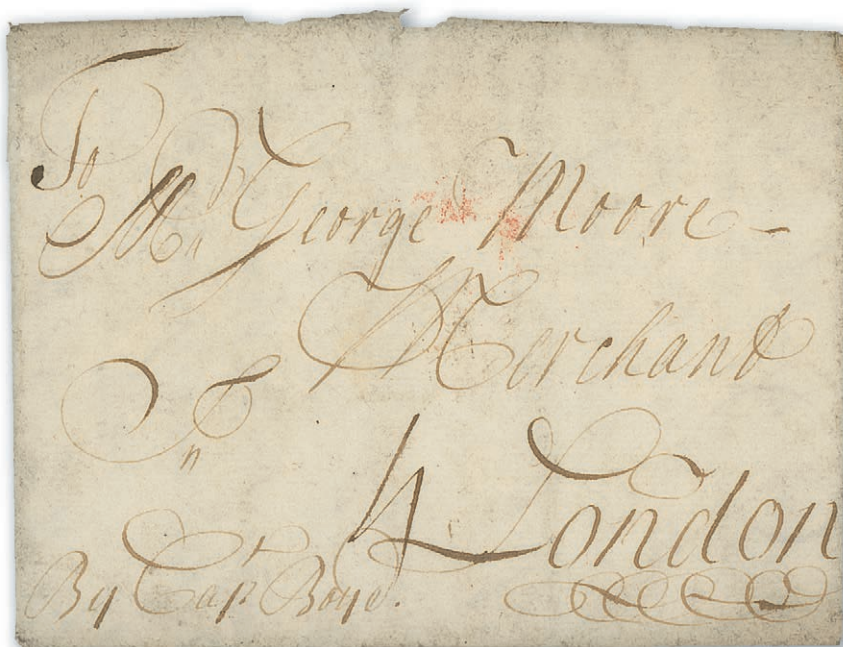 To
Mr George Moore
Merchant
In
4 London
By Capt Boyd.